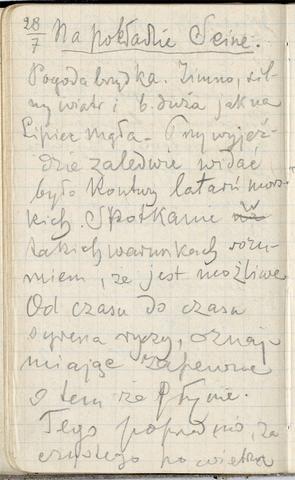 28/7 Na pokładzie Seine.
Pogoda brzydka. Zimno, sil-
ny wiatr i b. duża jak na
Lipiec mgła. Przy wyjeź-
dzie zaledwie widać
było kontury latarń mors-
kich. Spotkanie w
takich warunkach rozu-
miem, że jest możliwe
Od czasu do czasu
syrena ryczy, oznaj-
miając zapewne
o tem że płynie.
Tego poprzednio, za
czystego powietrza